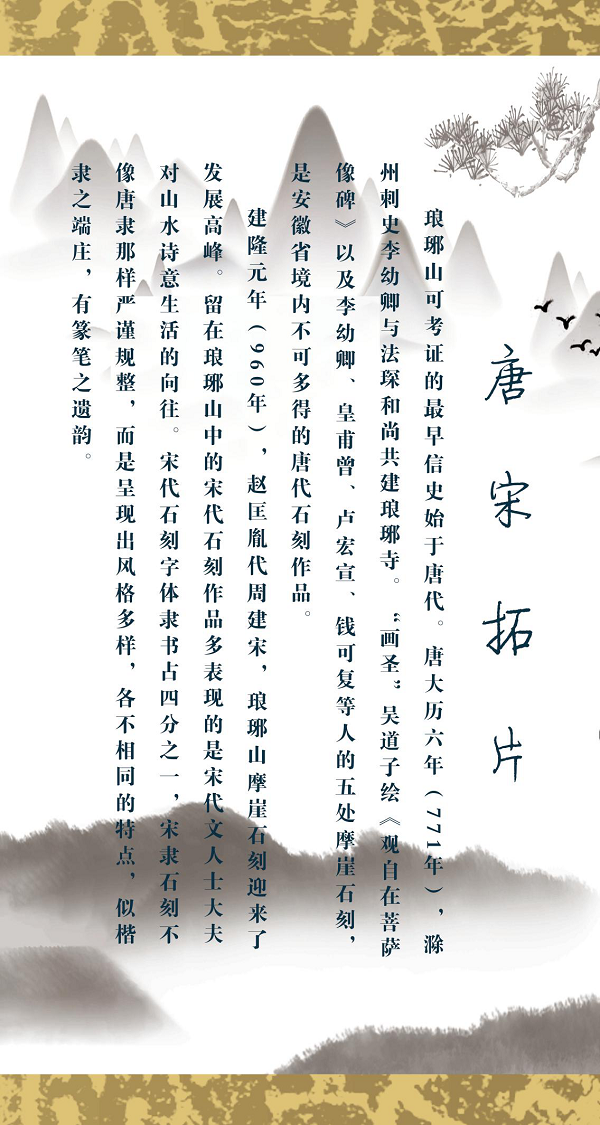 唐宋拓片
琅琊山可考证的最早信史始于唐代。唐大历六年（771年），滁
州刺史李幼卿与法琛和尚共建琅琊寺。“画圣”吴道子绘《观自在菩萨
像碑》以及李幼卿、皇甫曾、卢宏宣、钱可复等人的五处摩崖石刻，
是安徽省境内不可多得的唐代石刻作品。
建隆元年（960年），赵匡胤代周建宋，琅琊山摩崖石刻迎来了
发展高峰。留在琅琊山中的宋代石刻作品多表现的是宋代文人士大夫
对山水诗意生活的向往。宋代石刻字体隶书占四分之一，宋隶石刻不
像唐隶那样严谨规整，而是呈现出风格多样，各不相同的特点，似楷
隶之端庄，有篆笔之遗韵。